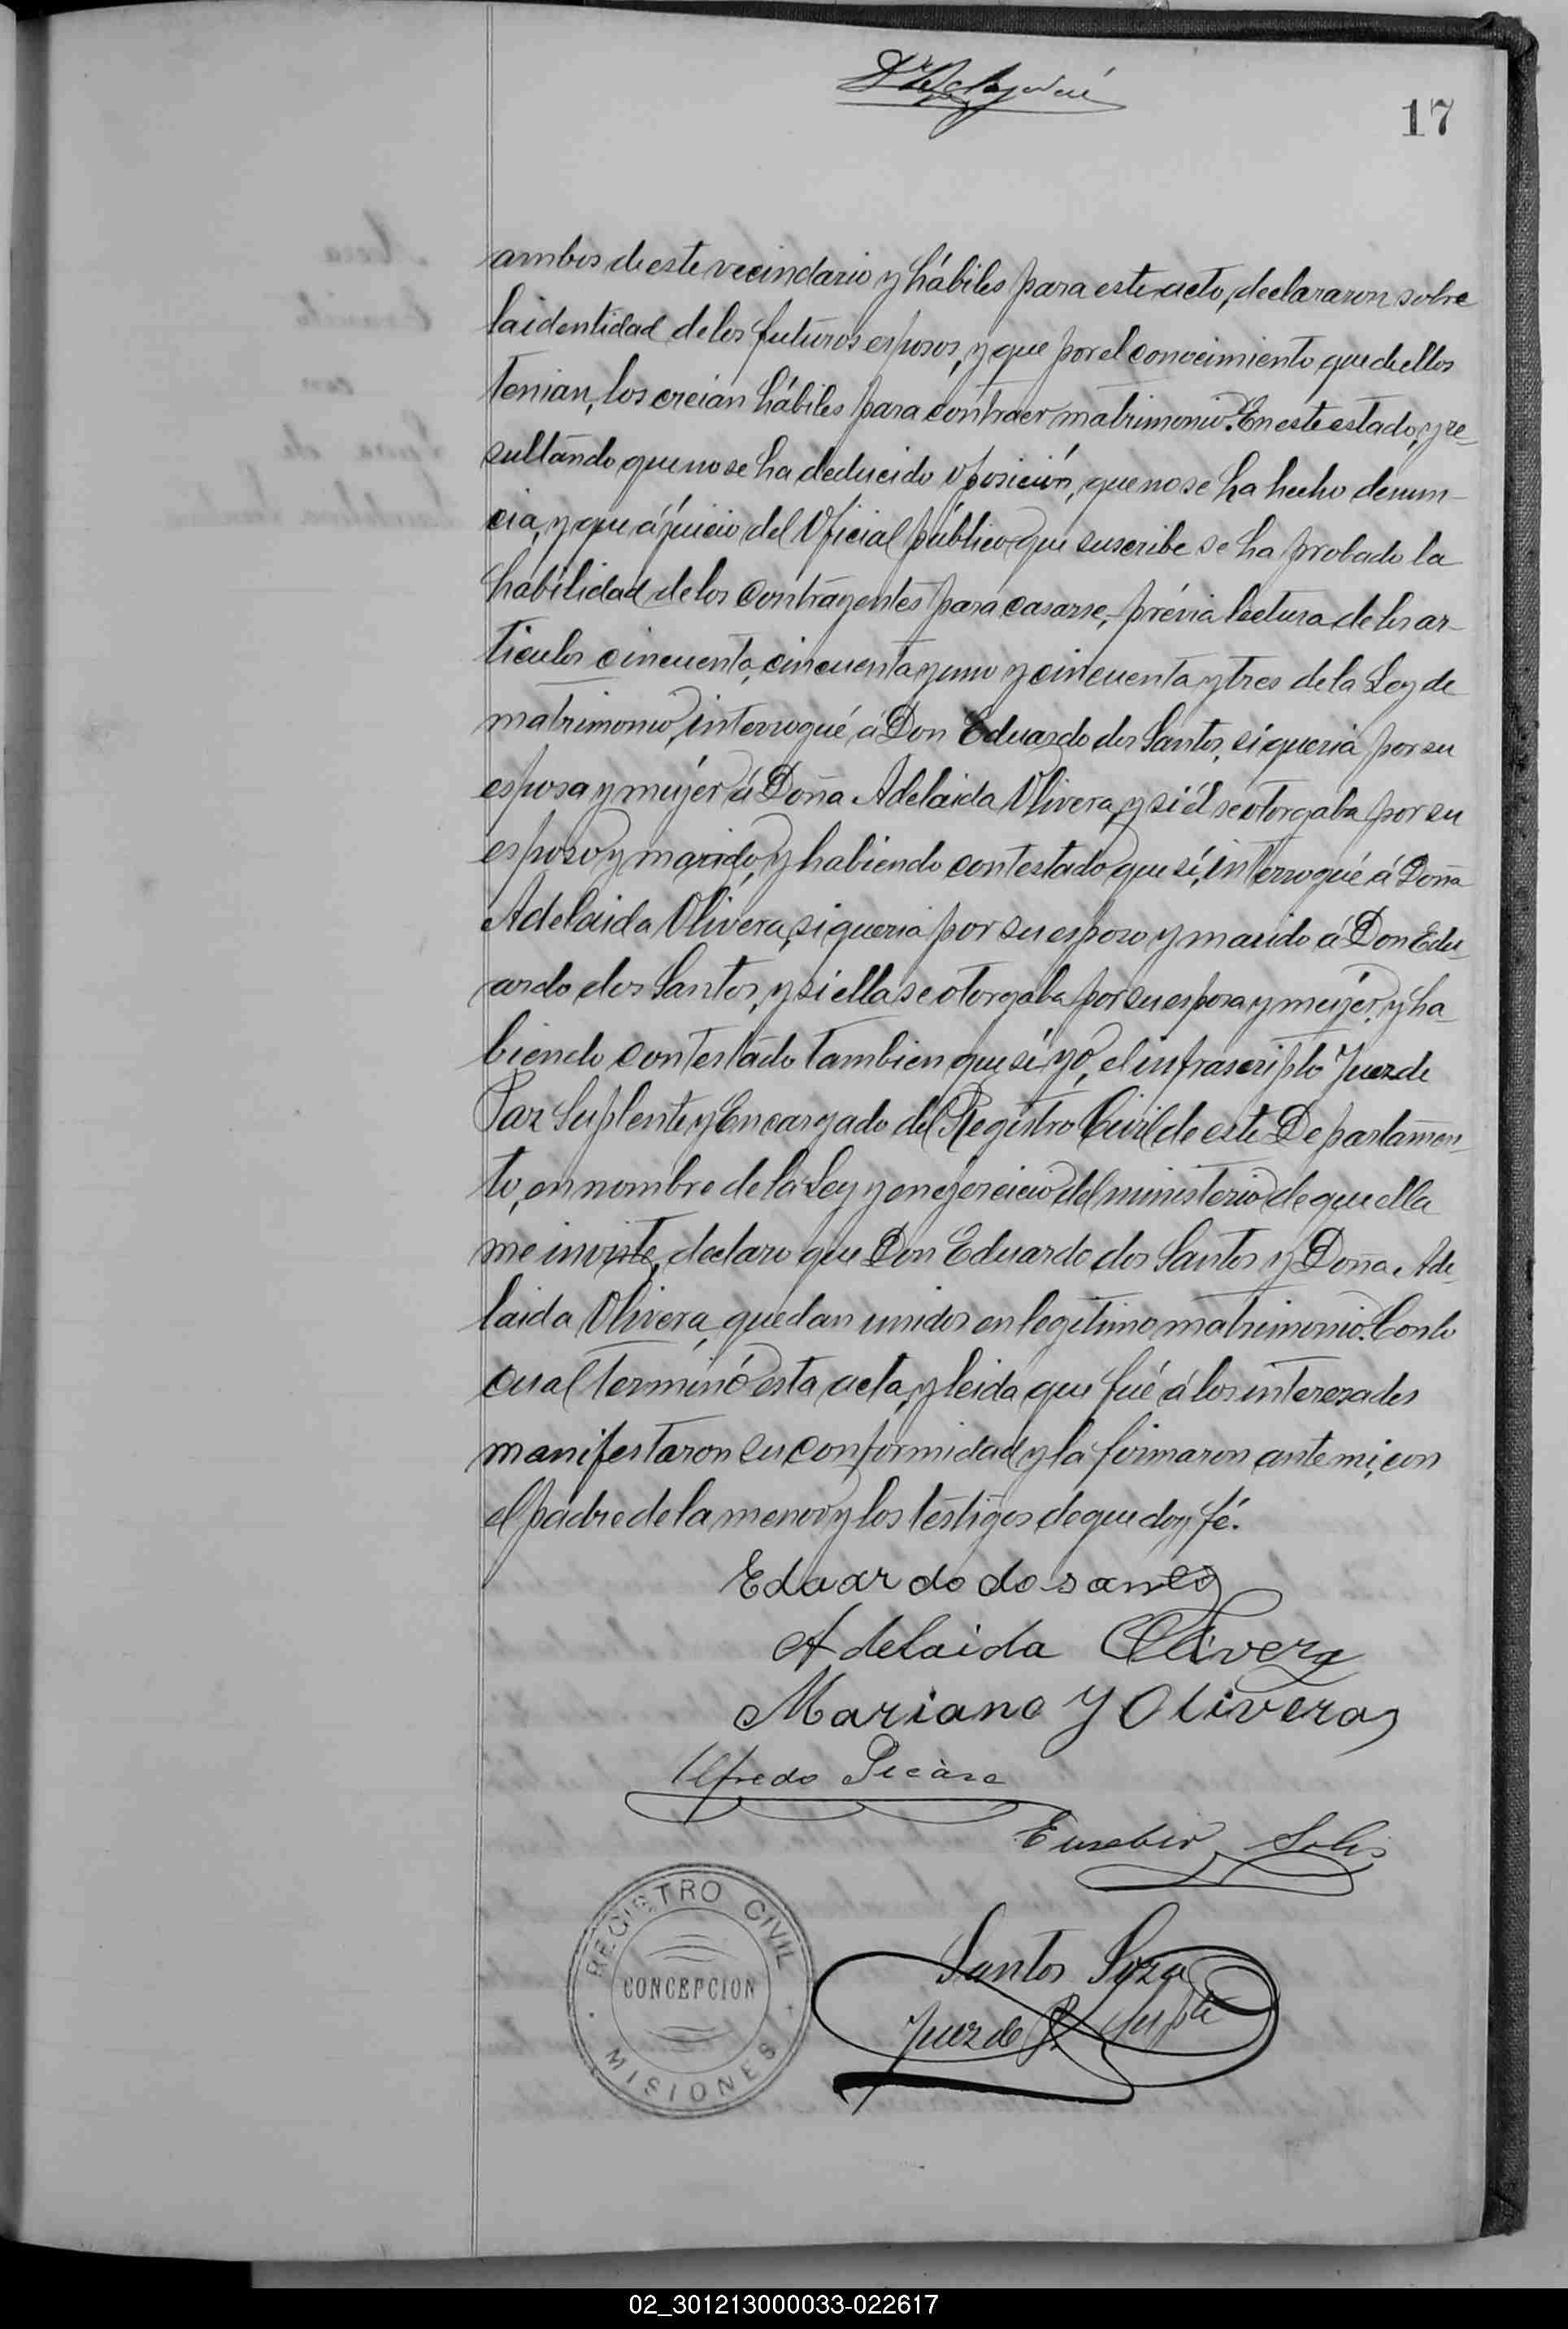 17
ambos de este vecindario y hábiles para este acto, declararon sobre
la identidad de los futuros esposos, y que por el conocimiento que de ellos
tenian, los creian hábiles para contraer matrimonio. En este estado, y re-
sultando que no se ha deducido oposición, que no se ha hecho denun-
cia, y que á juicio del Oficial público que suscribe se ha probado la
habilidad de los contrayentes para casarse, prévia lectura de los ar-
ticulos cincuenta, cincuenta y uno y cincuenta y tres de la Ley de
matrimonio, interrogué á Don Eduardo dos Santos, si queria por su
esposa y mujer á Doña Adelaida Olivera, y si él se otorgaba por su
esposo y marido, y habiendo contestado que sí, interrogué á Doña
Adelaida Olivera, si queria por su esposo y marido á Don Edu-
ardo dos Santos, y si ella se otorgaba por su esposa y mujer, y ha-
biendo contestado tambien que sí, yo, el infrascripto Juez de
Paz Suplente y Encargado del Registro Civil de este Departamen-
to, en nombre de la Ley y en ejercicio del ministerio de que ella
me inviste, declaro que Don Eduardo dos Santos y Doña Ade-
laida Olivera, quedan unidos en legitimo matrimonio. Con lo
cual terminó esta acta, y leida que fué á los interesados
manifestaron su conformidad y la firmaron ante mi, con
el padre de la menor y los testigos de que doy fé.
Eduardo do santos
Adelaida Olivera
Mariano Y Olivera
Alfredo
Eusebio Solis
REGISTRO CIVIL
CONCEPCION
MISIONES
Santos Soza
Juez de P. Suplte
02_301213000033-022617